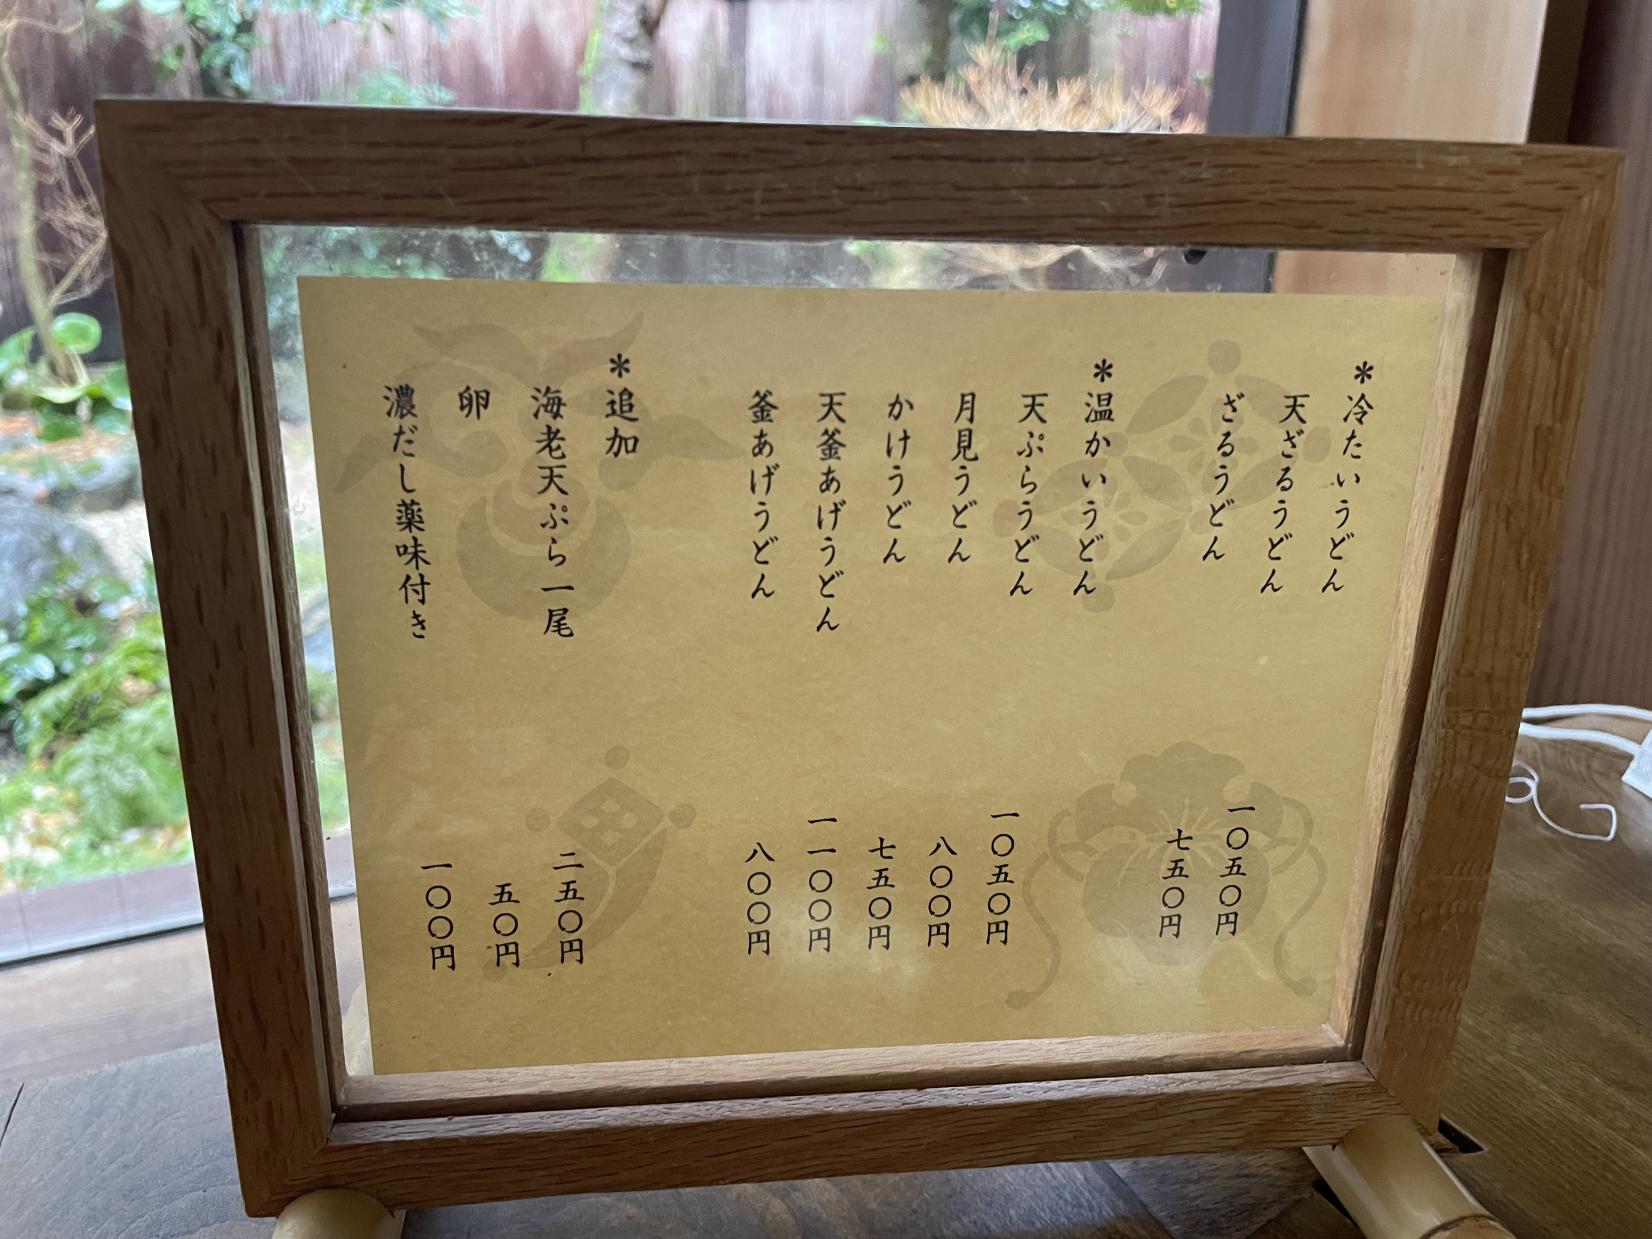 ＊冷たいうどん
天ざるうどん 一〇五〇円
ざるうどん 七五〇円
＊温かいうどん
天ぷらうどん 一〇五〇円
月見うどん 八〇〇円
かけうどん 七五〇円
天釜あげうどん 一一〇〇円
釜あげうどん 八〇〇円
＊追加
海老天ぷら一尾 二五〇円
卵 五〇円
濃だし薬味付き 一〇〇円